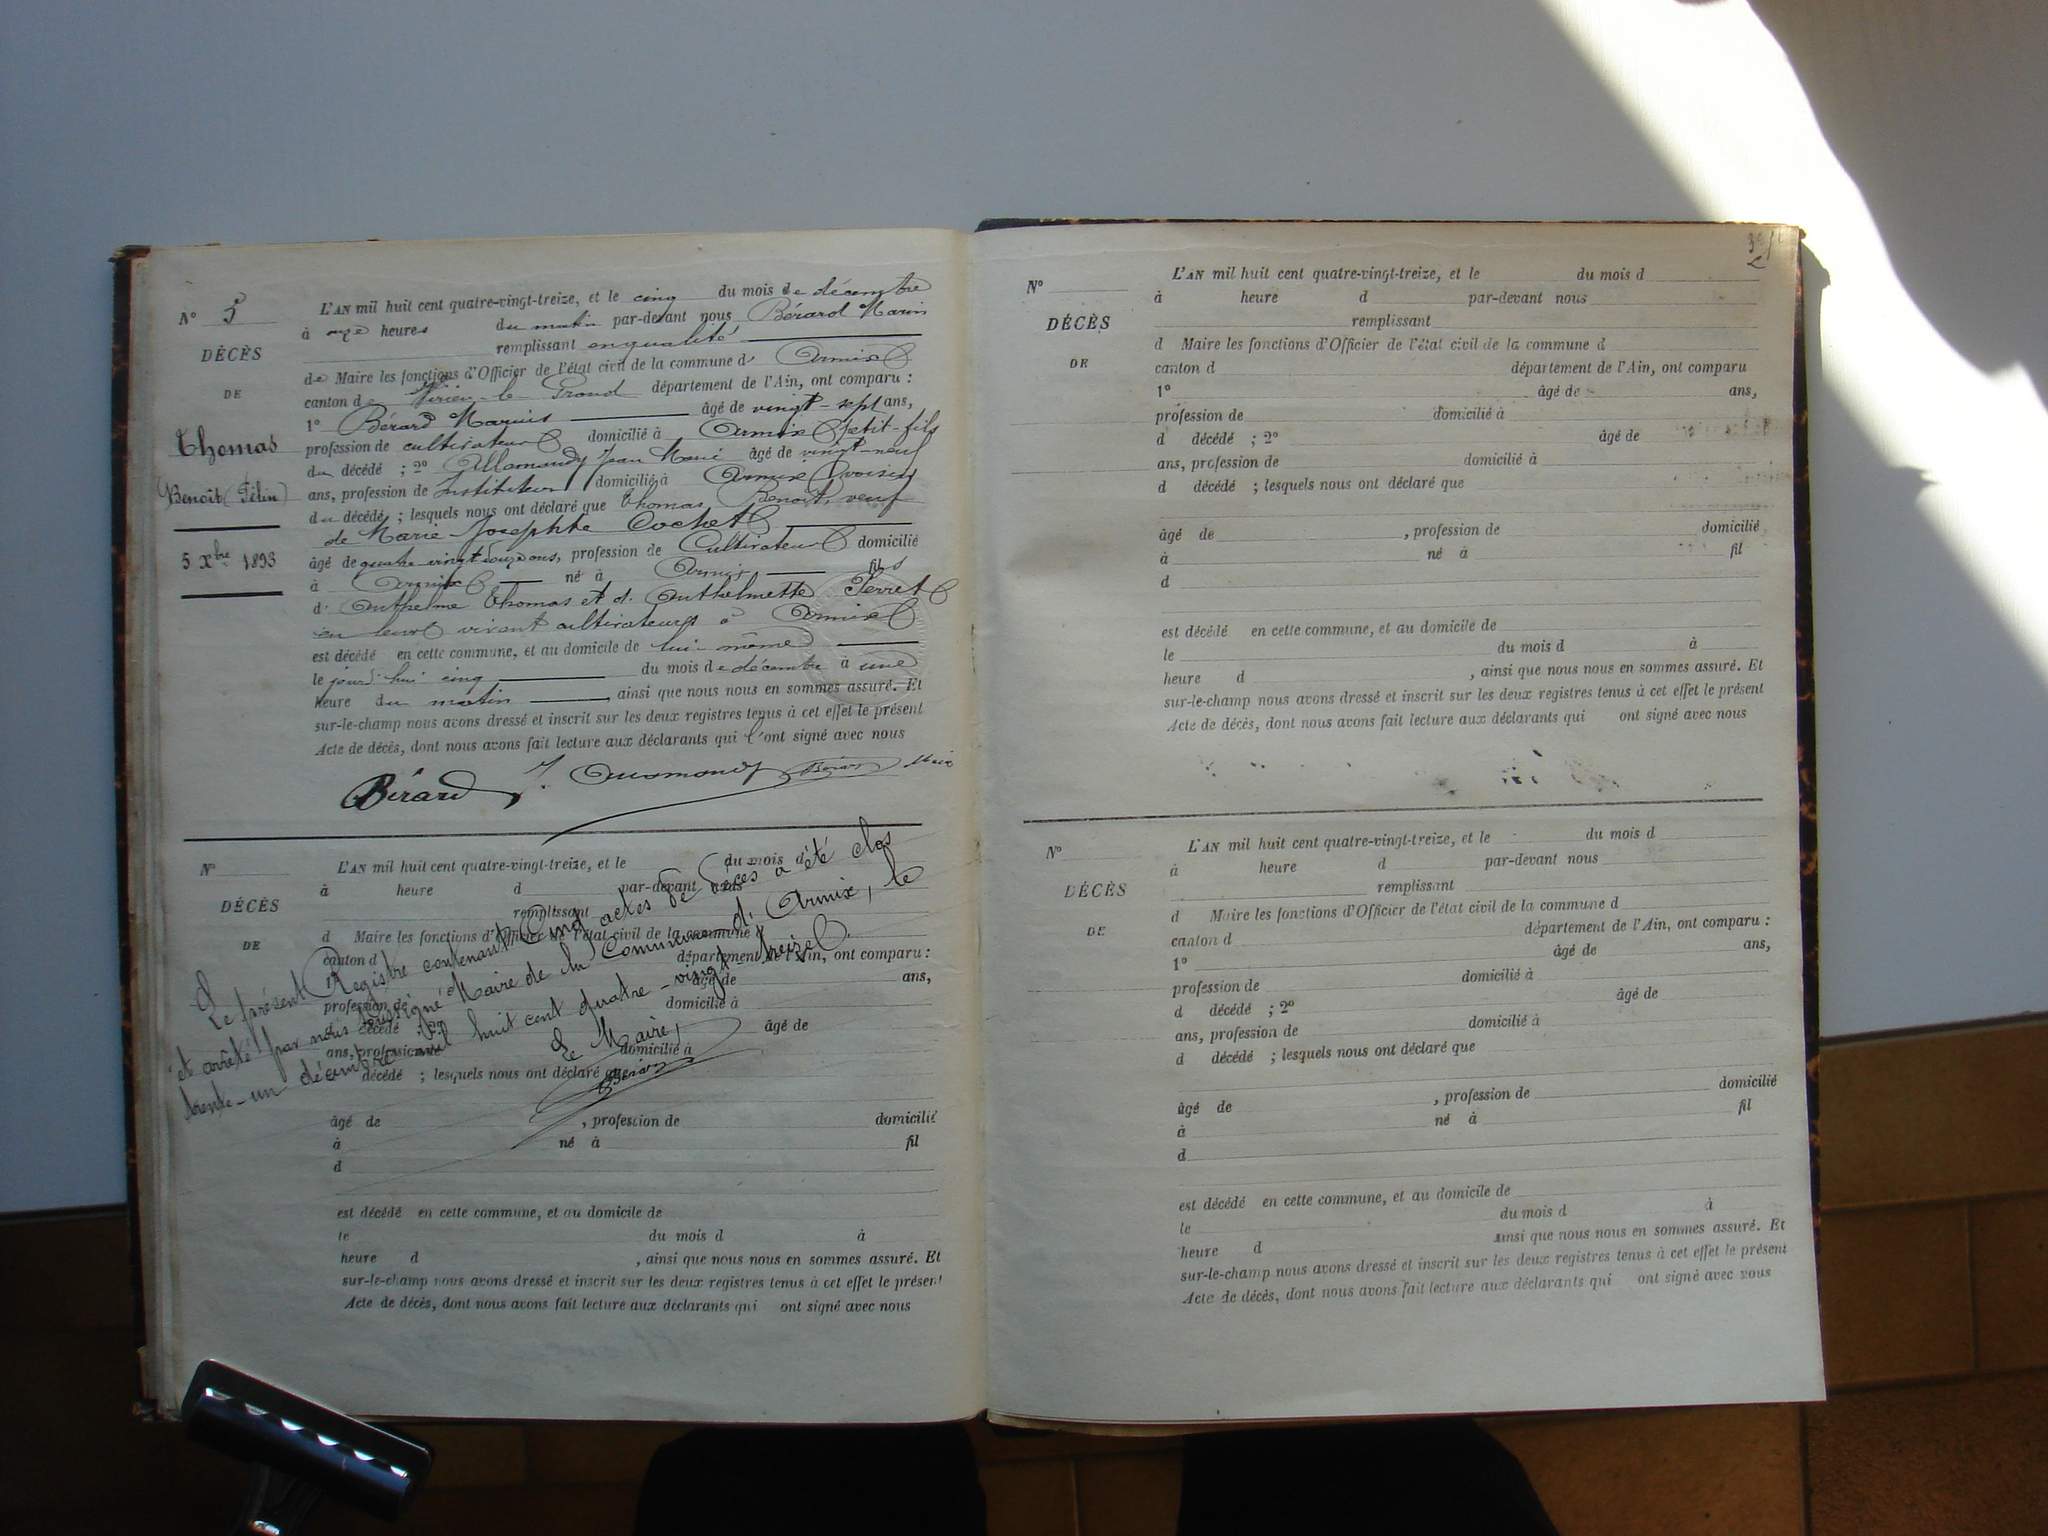 N° 5
DÉCÈS
DE
Thomas
Benoît (Félin)
5 Xbre 1893
L'AN mil huit cent quatre-vingt-treize, et le cinq du mois de décembre
à onze heures du matin par-devant nous Bérard Marin
remplissant en qualité
de Maire les fonctions d'Officier de l'état civil de la commune d' Armix
canton de Virieu-le-Grand département de l'Ain, ont comparu :
1° Bérard Marius âgé de vingt-sept ans,
profession de cultivateur domicilié à Armix petit-fils
du décédé ; 2° Allemandy Jean Marie âgé de vingt-neuf
ans, profession de Instituteur domicilié à Armix voisin
du décédé ; lesquels nous ont déclaré que Thomas Benoît, veuf
de Marie Josephte Cochet
âgé de quatre vingt douze ans, profession de Cultivateur domicilié
à Armix né à Armix fils
d' Anthelme Thomas et d' Anthelmette Perret
en leur vivant cultivateurs à Armix
est décédé en cette commune, et au domicile de lui-même
le jourd'hui cinq du mois de décembre à une
heure du matin, ainsi que nous nous en sommes assuré. Et
sur-le-champ nous avons dressé et inscrit sur les deux registres tenus à cet effet le présent
Acte de décès, dont nous avons fait lecture aux déclarants qui l'ont signé avec nous
Bérard J. Allemandy Bérard Maire
N°
DÉCÈS
DE
L'AN mil huit cent quatre-vingt-treize, et le du mois d
à heure d par-devant nous
remplissant
d Maire les fonctions d'Officier de l'état civil de la commune d
canton d département de l'Ain, ont comparu :
1° âgé de ans,
profession de domicilié à
d décédé ; 2° âgé de
ans, profession de domicilié à
d décédé ; lesquels nous ont déclaré que
âgé de , profession de domicilié
à né à fil
d
est décédé en cette commune, et au domicile de
le du mois d à
heure d , ainsi que nous nous en sommes assuré. Et
sur-le-champ nous avons dressé et inscrit sur les deux registres tenus à cet effet le présent
Acte de décès, dont nous avons fait lecture aux déclarants qui ont signé avec nous
Le présent Registre contenant Cinq actes de Décès a été clos
et arrêté par nous soussigné Maire de la Commune d'Armix, le
trente-un décembre mil huit cent quatre-vingt treize.
Le Maire,
Bérard
N°
DÉCÈS
DE
L'AN mil huit cent quatre-vingt-treize, et le du mois d
à heure d par-devant nous
remplissant
d Maire les fonctions d'Officier de l'état civil de la commune d
canton d département de l'Ain, ont comparu
1° âgé de ans,
profession de domicilié à
d décédé ; 2° âgé de
ans, profession de domicilié à
d décédé ; lesquels nous ont déclaré que
âgé de , profession de domicilié
à né à fil
d
est décédé en cette commune, et au domicile de
le du mois d à
heure d , ainsi que nous nous en sommes assuré. Et
sur-le-champ nous avons dressé et inscrit sur les deux registres tenus à cet effet le présent
Acte de décès, dont nous avons fait lecture aux déclarants qui ont signé avec nous
N°
DÉCÈS
DE
L'AN mil huit cent quatre-vingt-treize, et le du mois d
à heure d par-devant nous
remplissant
d Maire les fonctions d'Officier de l'état civil de la commune d
canton d département de l'Ain, ont comparu :
1° âgé de ans,
profession de domicilié à
d décédé ; 2° âgé de
ans, profession de domicilié à
d décédé ; lesquels nous ont déclaré que
âgé de , profession de domicilié
à né à fil
d
est décédé en cette commune, et au domicile de
le du mois d à
heure d ainsi que nous nous en sommes assuré. Et
sur-le-champ nous avons dressé et inscrit sur les deux registres tenus à cet effet le présent
Acte de décès, dont nous avons fait lecture aux déclarants qui ont signé avec nous